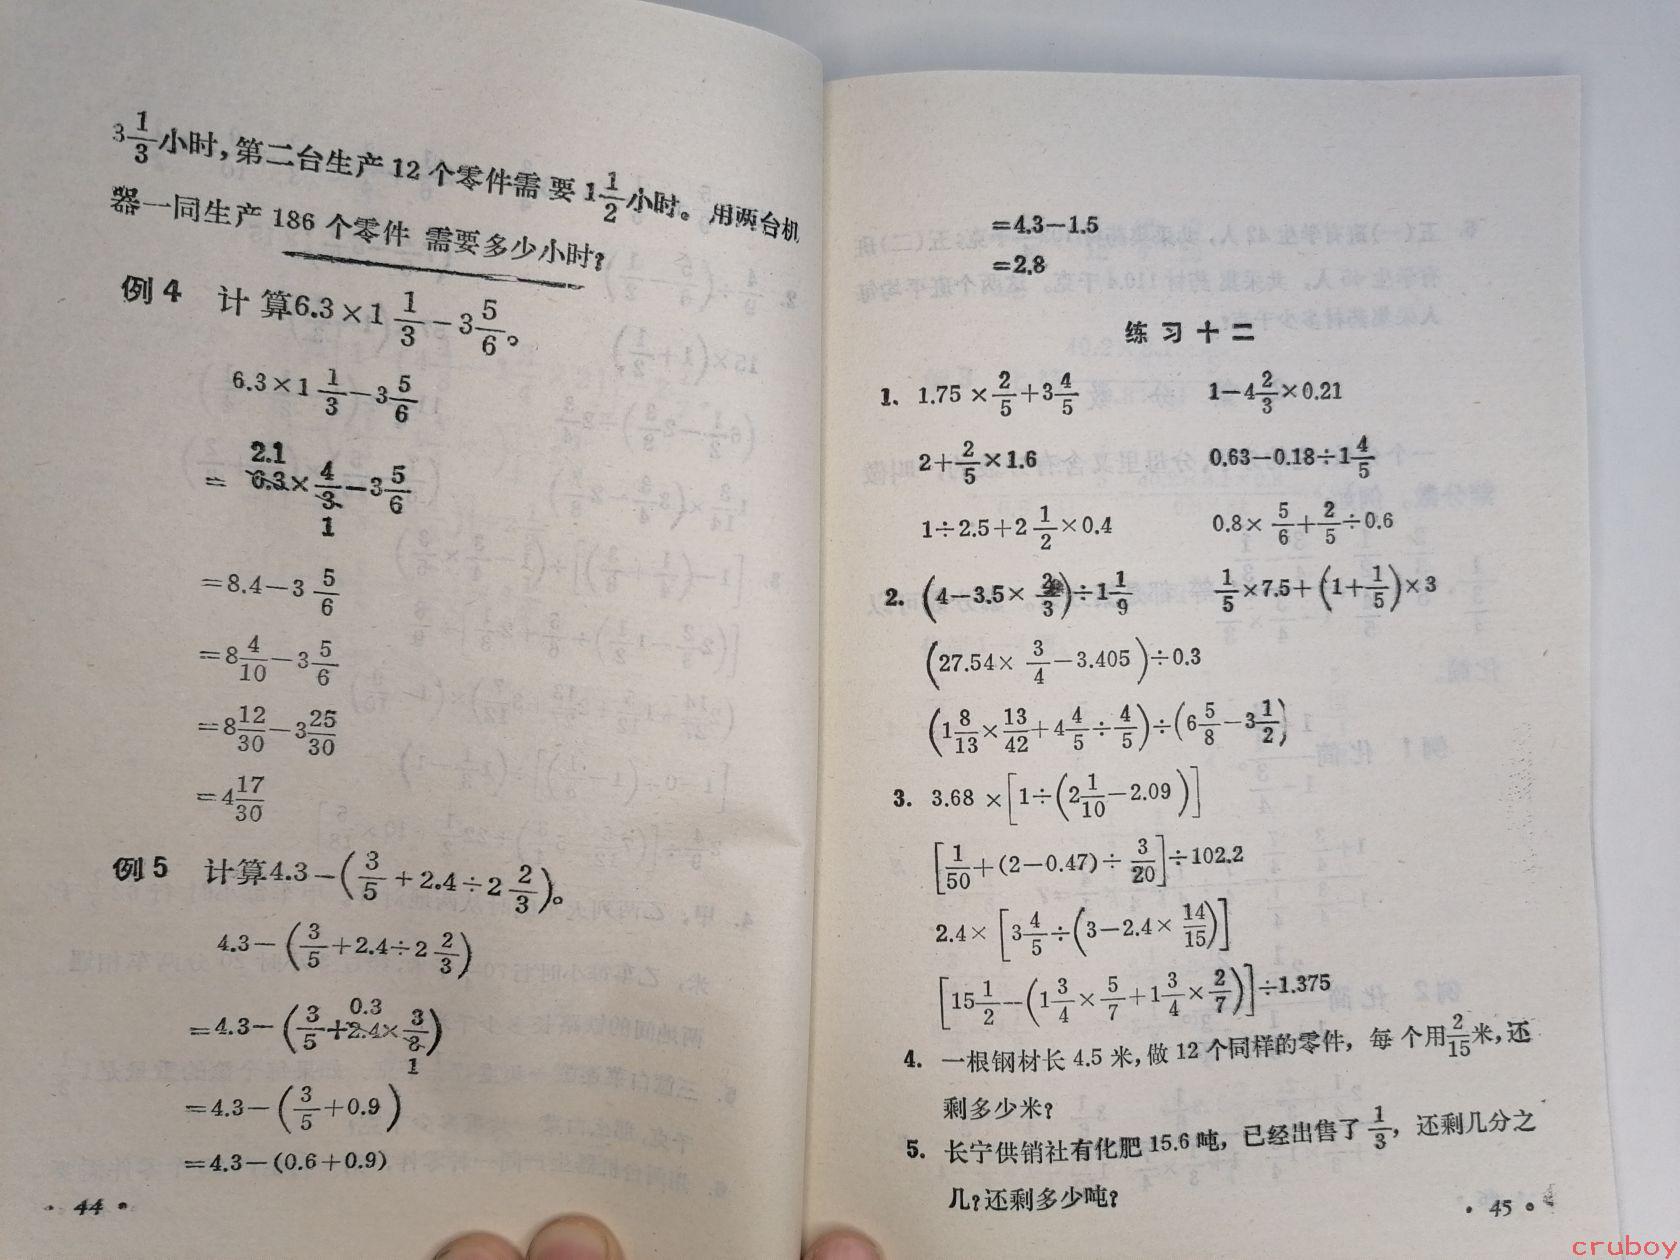 3 1/3 小时，第二台生产 12 个零件需要 1 1/2 小时。用两台机
器一同生产 186 个零件 需要多少小时？
例4 计算6.3×1 1/3－3 5/6。
6.3×1 1/3－3 5/6
2.1
= 6.3×4/3－3 5/6
1
=8.4－3 5/6
=8 4/10－3 5/6
=8 12/30－3 25/30
=4 17/30
例5 计算4.3－(3/5＋2.4÷2 2/3)。
4.3－(3/5＋2.4÷2 2/3)
0.3
=4.3－(3/5＋2.4×3/8)
1
=4.3－(3/5＋0.9)
=4.3－(0.6＋0.9)
· 44 ·
=4.3－1.5
=2.8
练习十二
1. 1.75×2/5＋3 4/5 1－4 2/3×0.21
2＋2/5×1.6 0.63－0.18÷1 4/5
1÷2.5＋2 1/2×0.4 0.8×5/6＋2/5÷0.6
2. (4－3.5×2/3)÷1 1/9 1/5×7.5＋(1＋1/5)×3
(27.54×3/4－3.405)÷0.3
(1 8/13×13/42＋4 4/5÷4/5)÷(6 5/8－3 1/2)
3. 3.68×[1÷(2 1/10－2.09)]
[1/50＋(2－0.47)÷3/20]÷102.2
2.4×[3 4/5÷(3－2.4×14/15)]
[15 1/2－(1 3/4×5/7＋1 3/4×2/7)]÷1.375
4. 一根钢材长 4.5 米，做 12 个同样的零件，每个用 2/15 米，还
剩多少米？
5. 长宁供销社有化肥 15.6 吨，已经出售了 1/3，还剩几分之
几？还剩多少吨？
· 45 ·
cruboy